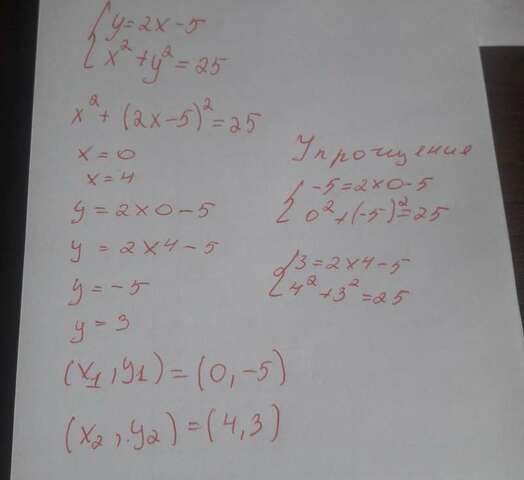 y=2x-5
x²+y²=25
x²+(2x-5)²=25
x=0
x=4
y=2×0-5
y=2×4-5
y=-5
y=3
(x₁,y₁)=(0,-5)
(x₂,y₂)=(4,3)
Упрощения
-5=2×0-5
0²+(-5)²=25
3=2×4-5
4²+3²=25